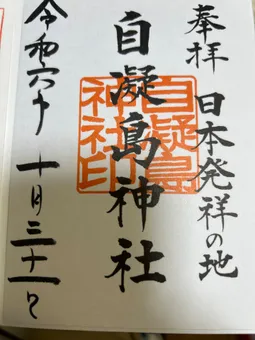 奉拝 日本発祥の地
自凝島神社
自凝島神社印
令和六年 十月三十一日